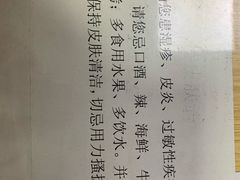 您患湿疹、皮炎、过敏性疾
请您忌口酒、辣、海鲜、牛
；多食用水果、多饮水。并
保持皮肤清洁，切忌用力搔